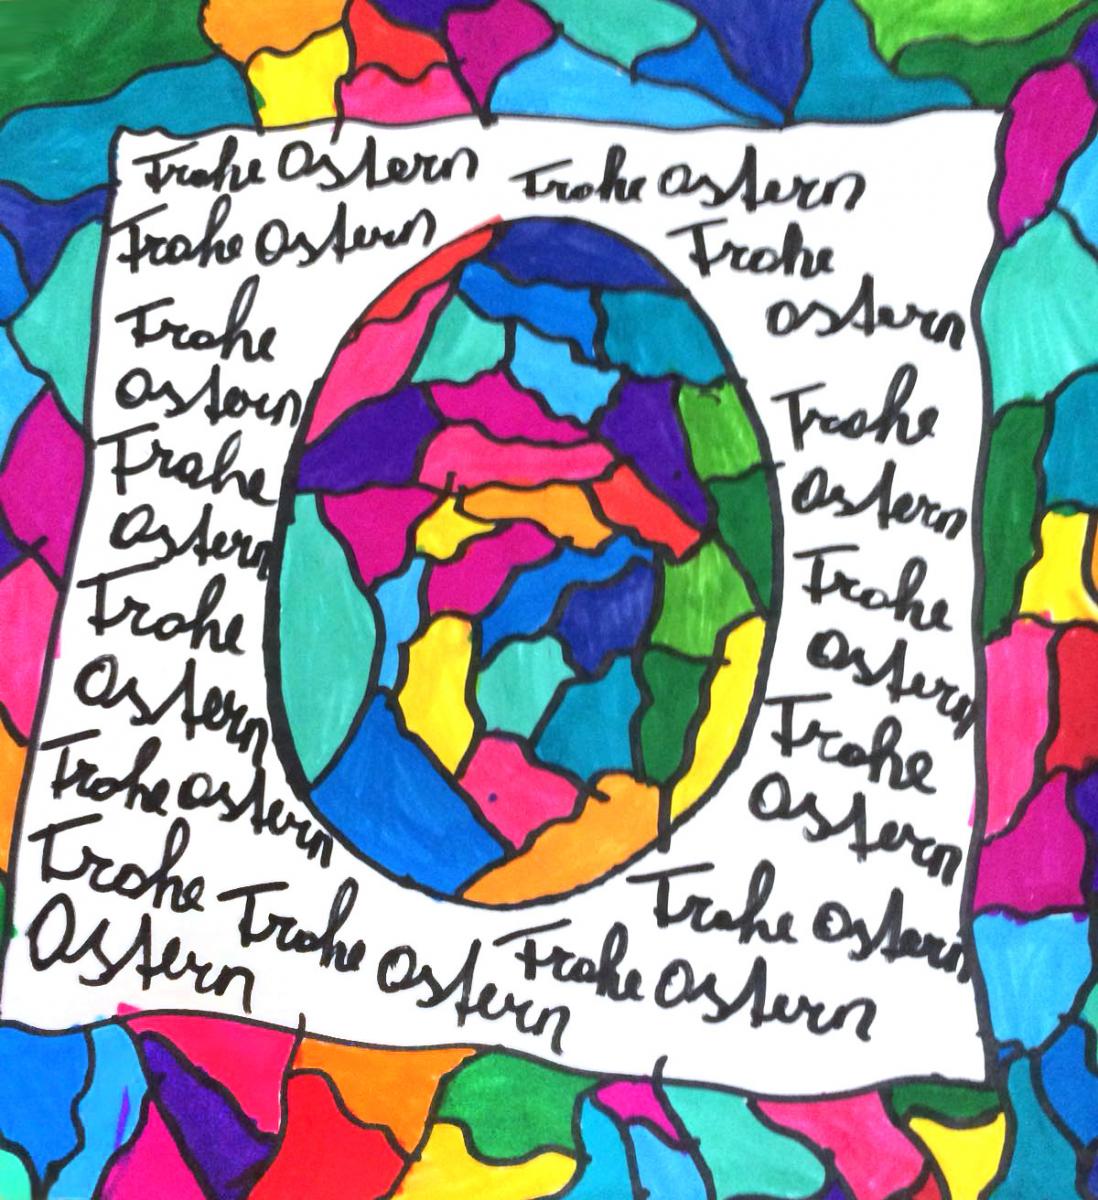 Frohe Ostern
Frohe Ostern
Frohe Ostern
Frohe
Ostern
Frohe
Ostern
Frohe
Ostern
Frohe
Ostern
Frohe Ostern
Frohe
Ostern
Frohe
Ostern
Frohe
Ostern
Frohe
Ostern
Frohe
Ostern
Frohe Ostern
Frohe Ostern
Frohe Ostern